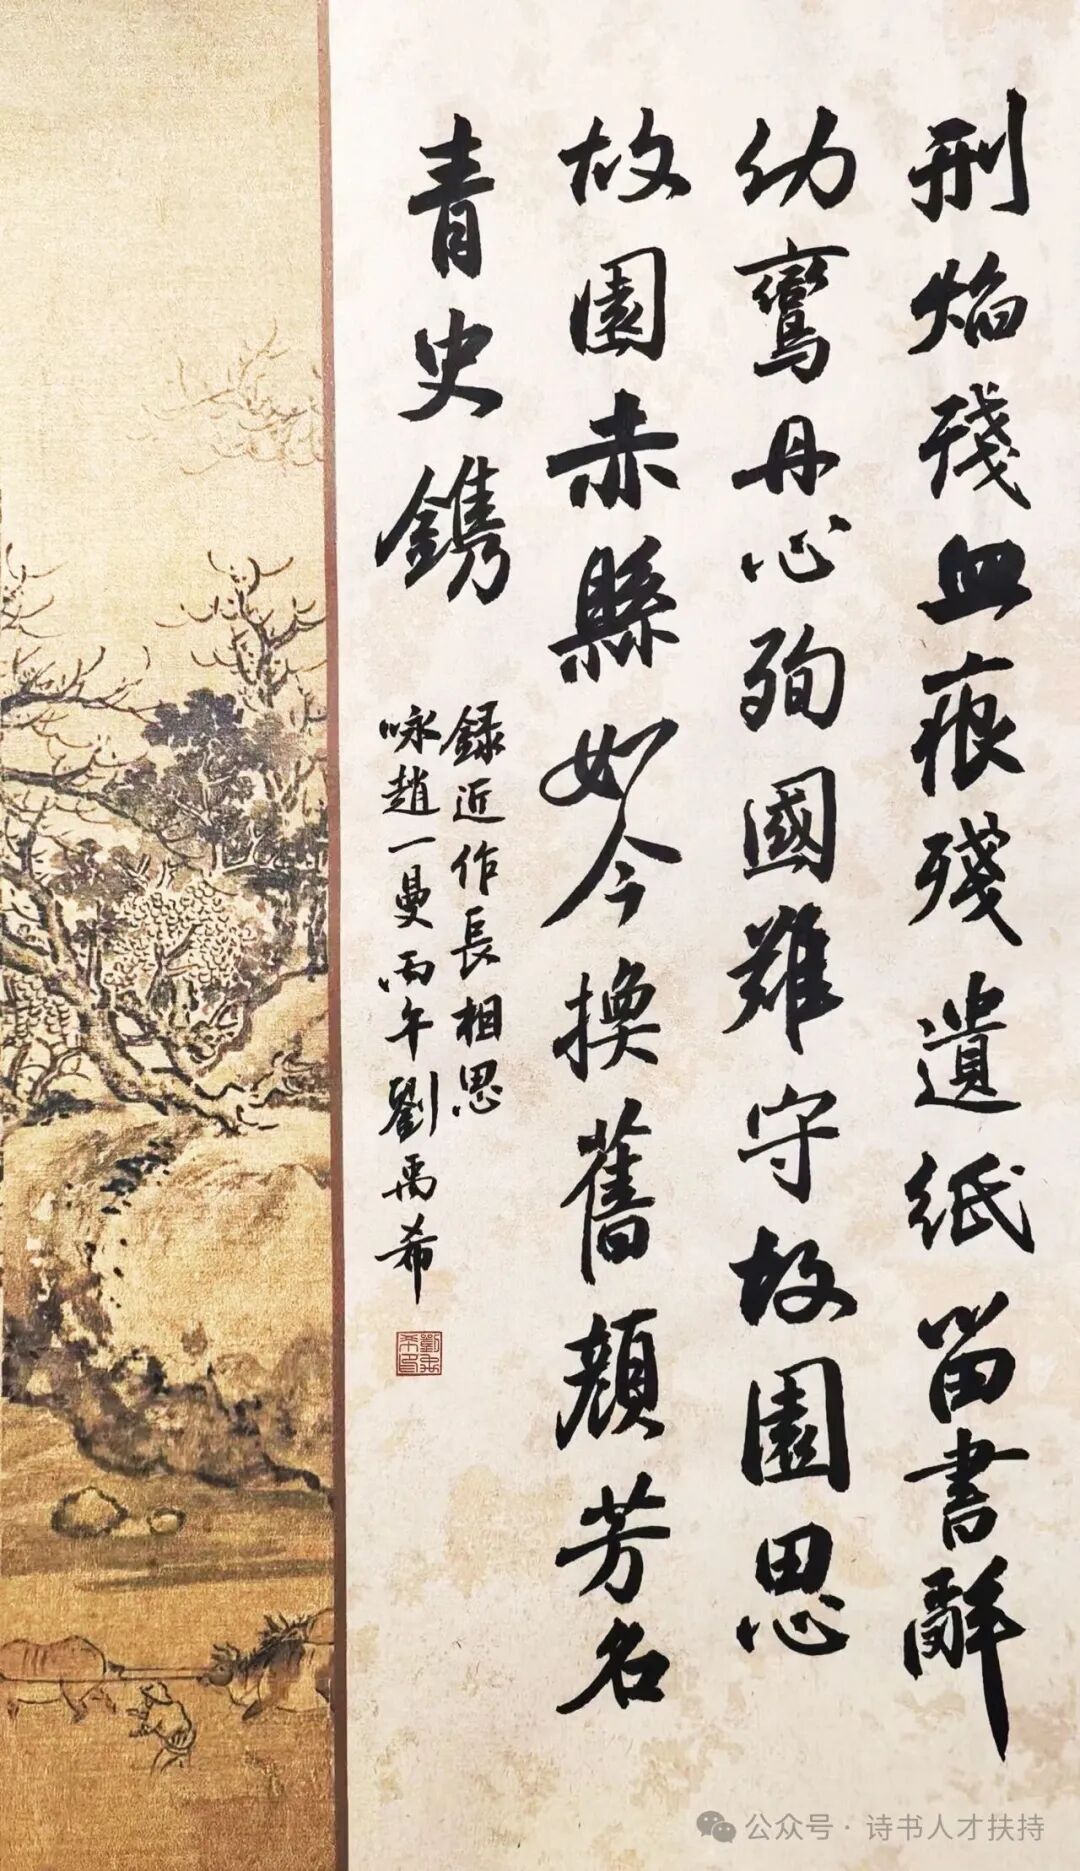 刑焰殘血痕殘遺紙留書辭
幼鸞丹心殉國難守故園思
故園赤縣如今換舊顏芳名
青史鐫
錄近作長相思
咏趙一曼丙午劉禹希
劉禹希印
公众号·诗书人才扶持